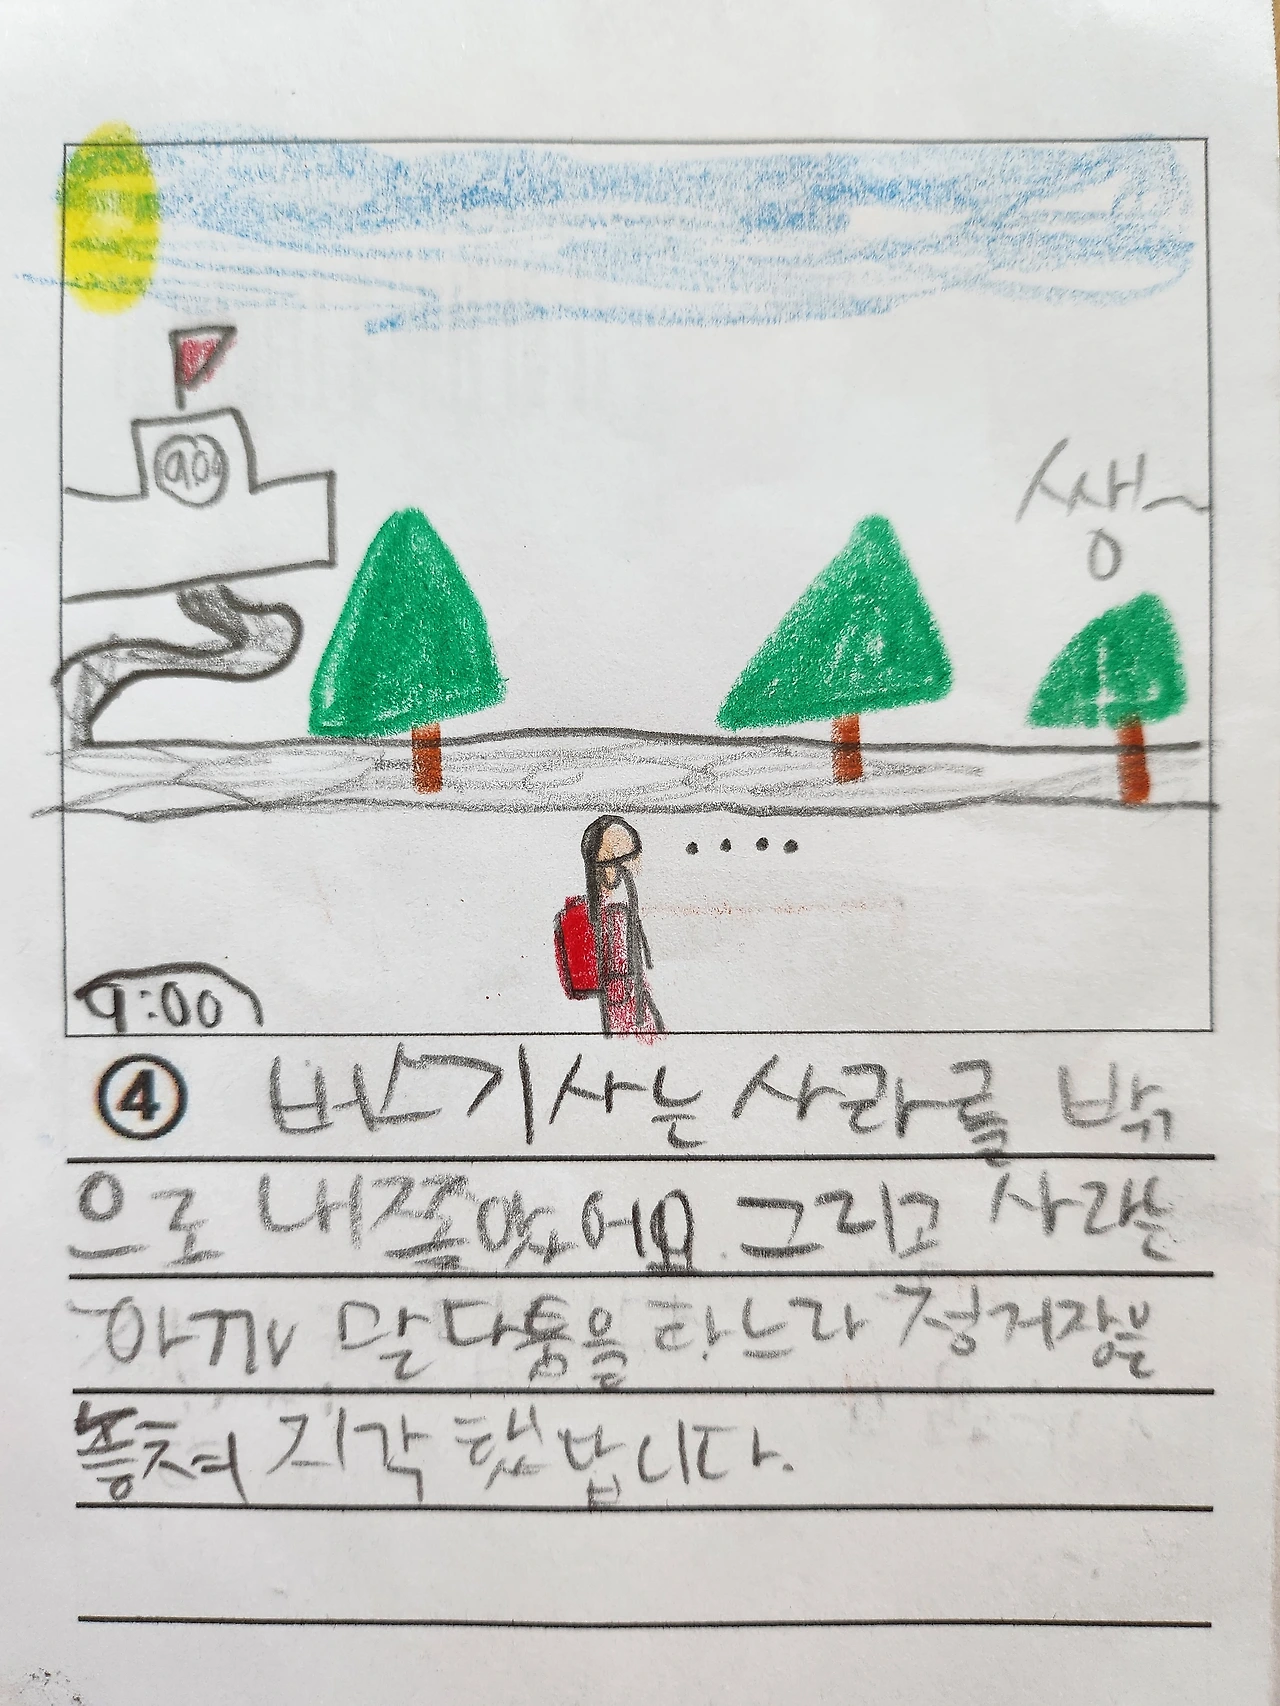 9:00
쌩~
9:00
④ 버스기사는 사라를 밖
으로 내쫓았어요. 그리고 사라는
아까 말다툼을 하느라 정거장을
놓쳐 지각 했답니다.